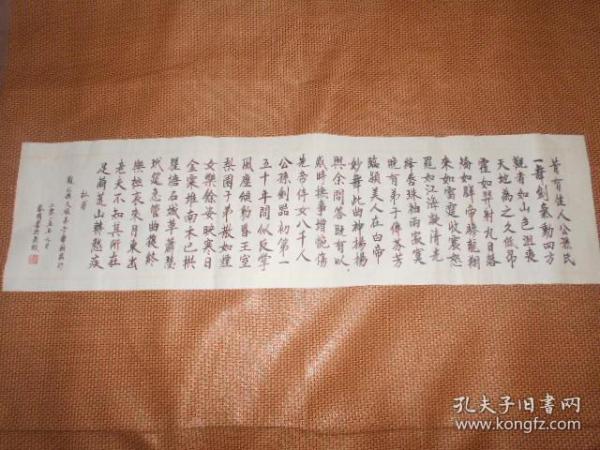 昔有佳人公孫氏
一舞劍氣動四方
觀者如山色沮喪
天地為之久低昂
㸌如羿射九日落
矯如群帝驂龍翔
來如雷霆收震怒
罷如江海凝清光
絳唇珠袖兩寂寞
晚有弟子傳芬芳
臨潁美人在白帝
妙舞此曲神揚揚
與余問答既有以
感時撫事增惋傷
先帝侍女八千人
公孫劍器初第一
五十年間似反掌
風塵傾動昏王室
梨園子弟散如煙
女樂餘姿映寒日
金粟堆南木已拱
瞿塘石城草蕭瑟
玳筵急管曲復終
樂極哀來月東出
老夫不知其所在
足繭荒山轉愁疾
杜甫
觀公孫大娘弟子舞劍器行
孔夫子旧书网
www.kongfz.com